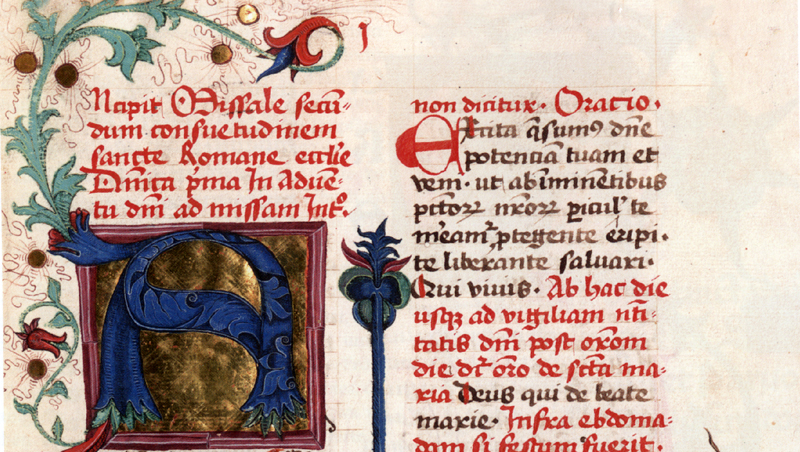 I
Incipit Missale secū-
dum consuetudinem
sancte Romane eccl̄ie
Dn̄ica pr̄ma In Adue-
tu dn̄i ad missam Int°.
A
non dicitur. Oratio.
Excita q̄sumꝰ dn̄e
potenciā tuam et
veni. ut ab īminētibus
pctōꝝ nr̄oꝝ ꝑicul' te
m̄eam̄ ꝓtegente eripi.
te liberante saluari.
Qui viuis. Ab hac die
usqꝫ ad vigiliam nt̄i-
tatis dn̄i post orōm
die dr̄ oro de sctā ma-
ria Deus qui de beate
marie. Infra ebdoma-
dam si festum fuerit.